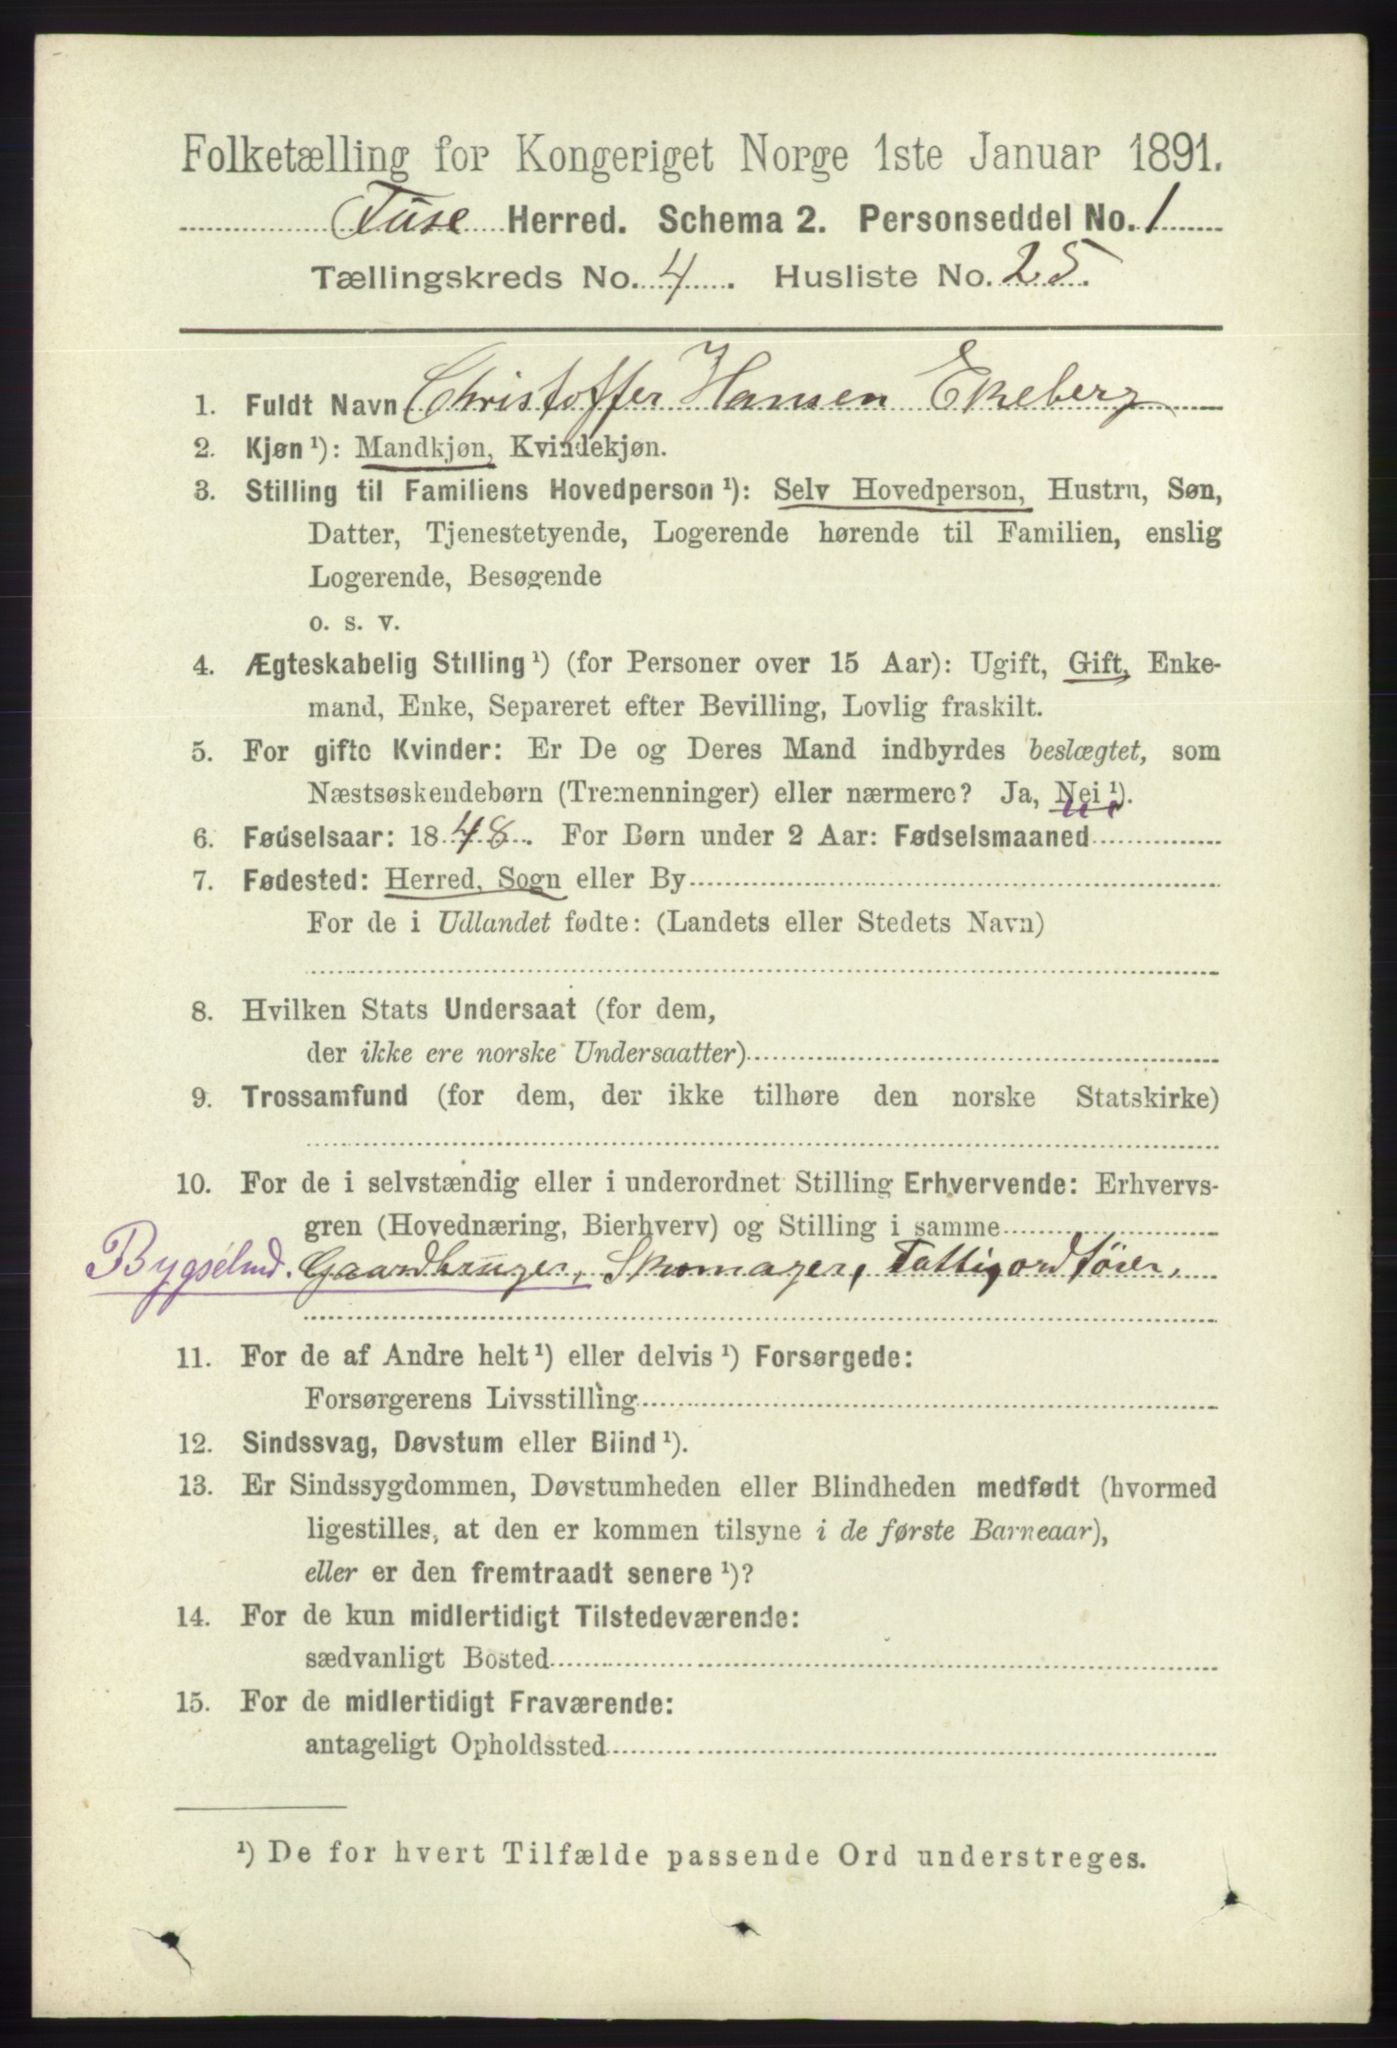 Folketælling for Kongeriget Norge 1ste Januar 1891.
Fuse Herred. Schema 2. Personseddel No. 1
Tællingskreds No. 4. Husliste No. 25.
1. Fuldt Navn Christoffer Hansen Ekeberg
2. Kjøn ¹): Mandkjøn, Kvindekjøn.
3. Stilling til Familiens Hovedperson ¹): Selv Hovedperson, Hustru, Søn,
Datter, Tjenestetyende, Logerende hørende til Familien, enslig
Logerende, Besøgende
o. s. v.
4. Ægteskabelig Stilling ¹) (for Personer over 15 Aar): Ugift, Gift, Enke-
mand, Enke, Separeret efter Bevilling, Lovlig fraskilt.
5. For gifte Kvinder: Er De og Deres Mand indbyrdes beslægtet, som
Næstsøskendebørn (Tremenninger) eller nærmere? Ja, Nei ¹).
6. Fødselsaar: 1848. For Børn under 2 Aar: Fødselsmaaned
7. Fødested: Herred, Sogn eller By
For de i Udlandet fødte: (Landets eller Stedets Navn)
8. Hvilken Stats Undersaat (for dem,
der ikke ere norske Undersaatter)
9. Trossamfund (for dem, der ikke tilhøre den norske Statskirke)
10. For de i selvstændig eller i underordnet Stilling Erhvervende: Erhvervs-
gren (Hovednæring, Bierhverv) og Stilling i samme
Gaardbruger, Skomager, Fattigordfører.
11. For de af Andre helt ¹) eller delvis ¹) Forsørgede:
Forsørgerens Livsstilling
12. Sindssvag, Døvstum eller Blind ¹).
13. Er Sindssygdommen, Døvstumheden eller Blindheden medfødt (hvormed
ligestilles, at den er kommen tilsyne i de første Barneaar),
eller er den fremtraadt senere ¹)?
14. For de kun midlertidigt Tilstedeværende:
sædvanligt Bosted
15. For de midlertidigt Fraværende:
antageligt Opholdssted
¹) De for hvert Tilfælde passende Ord understreges.